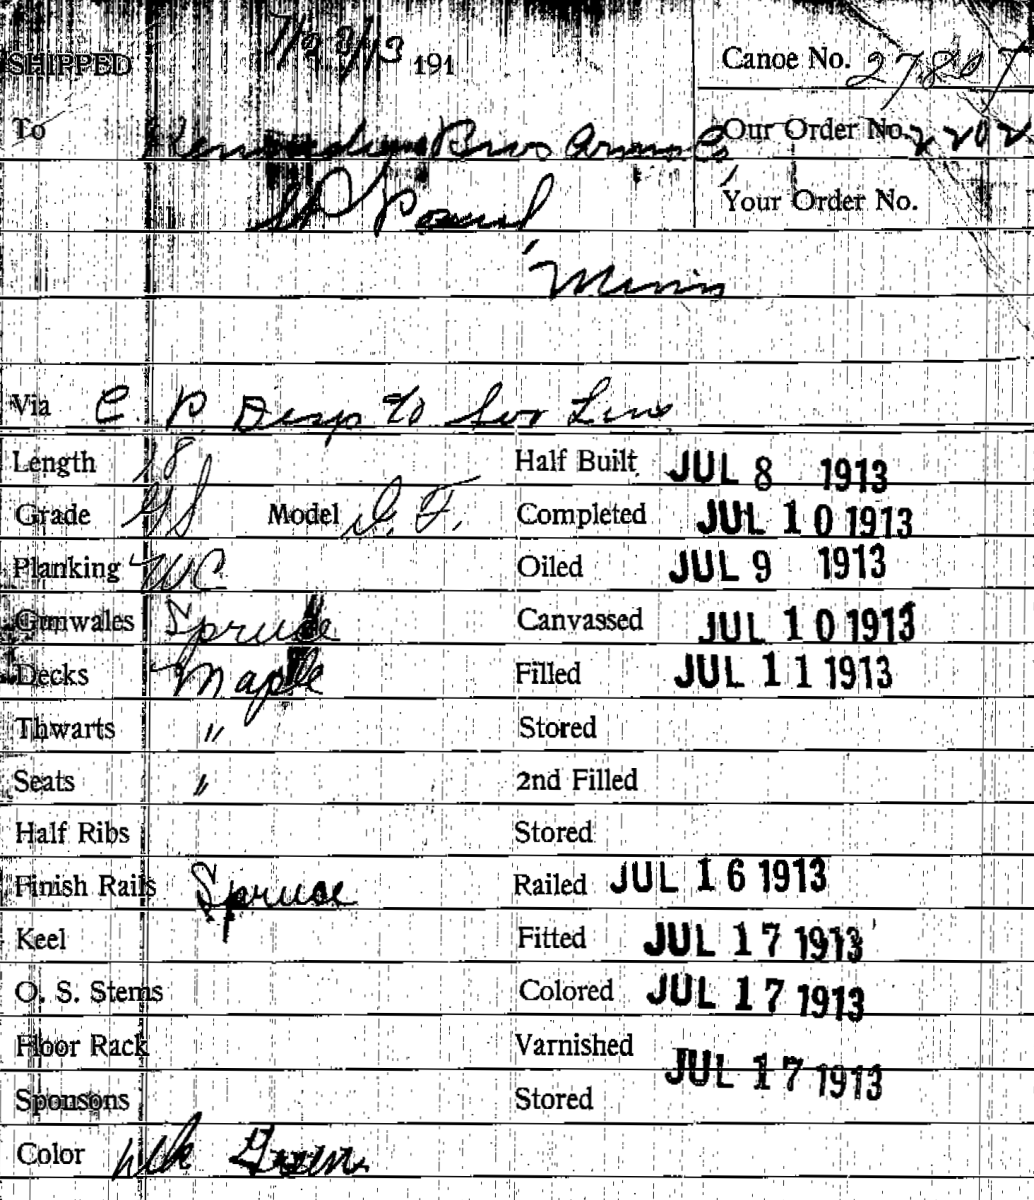 SHIPPED 7/23/13 191
Canoe No. 27807
To Kennedy Bros Arms Co,
Our Order No. 2202
St Paul,
Your Order No.
Minn
Via C. P. Desp to Soo Line
Length 18
Half Built JUL 8 1913
Grade Model
Completed JUL 10 1913
Planking WC
Oiled JUL 9 1913
Gunwales Spruce
Canvassed JUL 10 1913
Decks Maple
Filled JUL 11 1913
Thwarts "
Stored
Seats "
2nd Filled
Half Ribs
Stored
Finish Rails Spruce
Railed JUL 16 1913
Keel
Fitted JUL 17 1913
O. S. Stems
Colored JUL 17 1913
Floor Rack
Varnished JUL 17 1913
Sponsons
Stored
Color Green